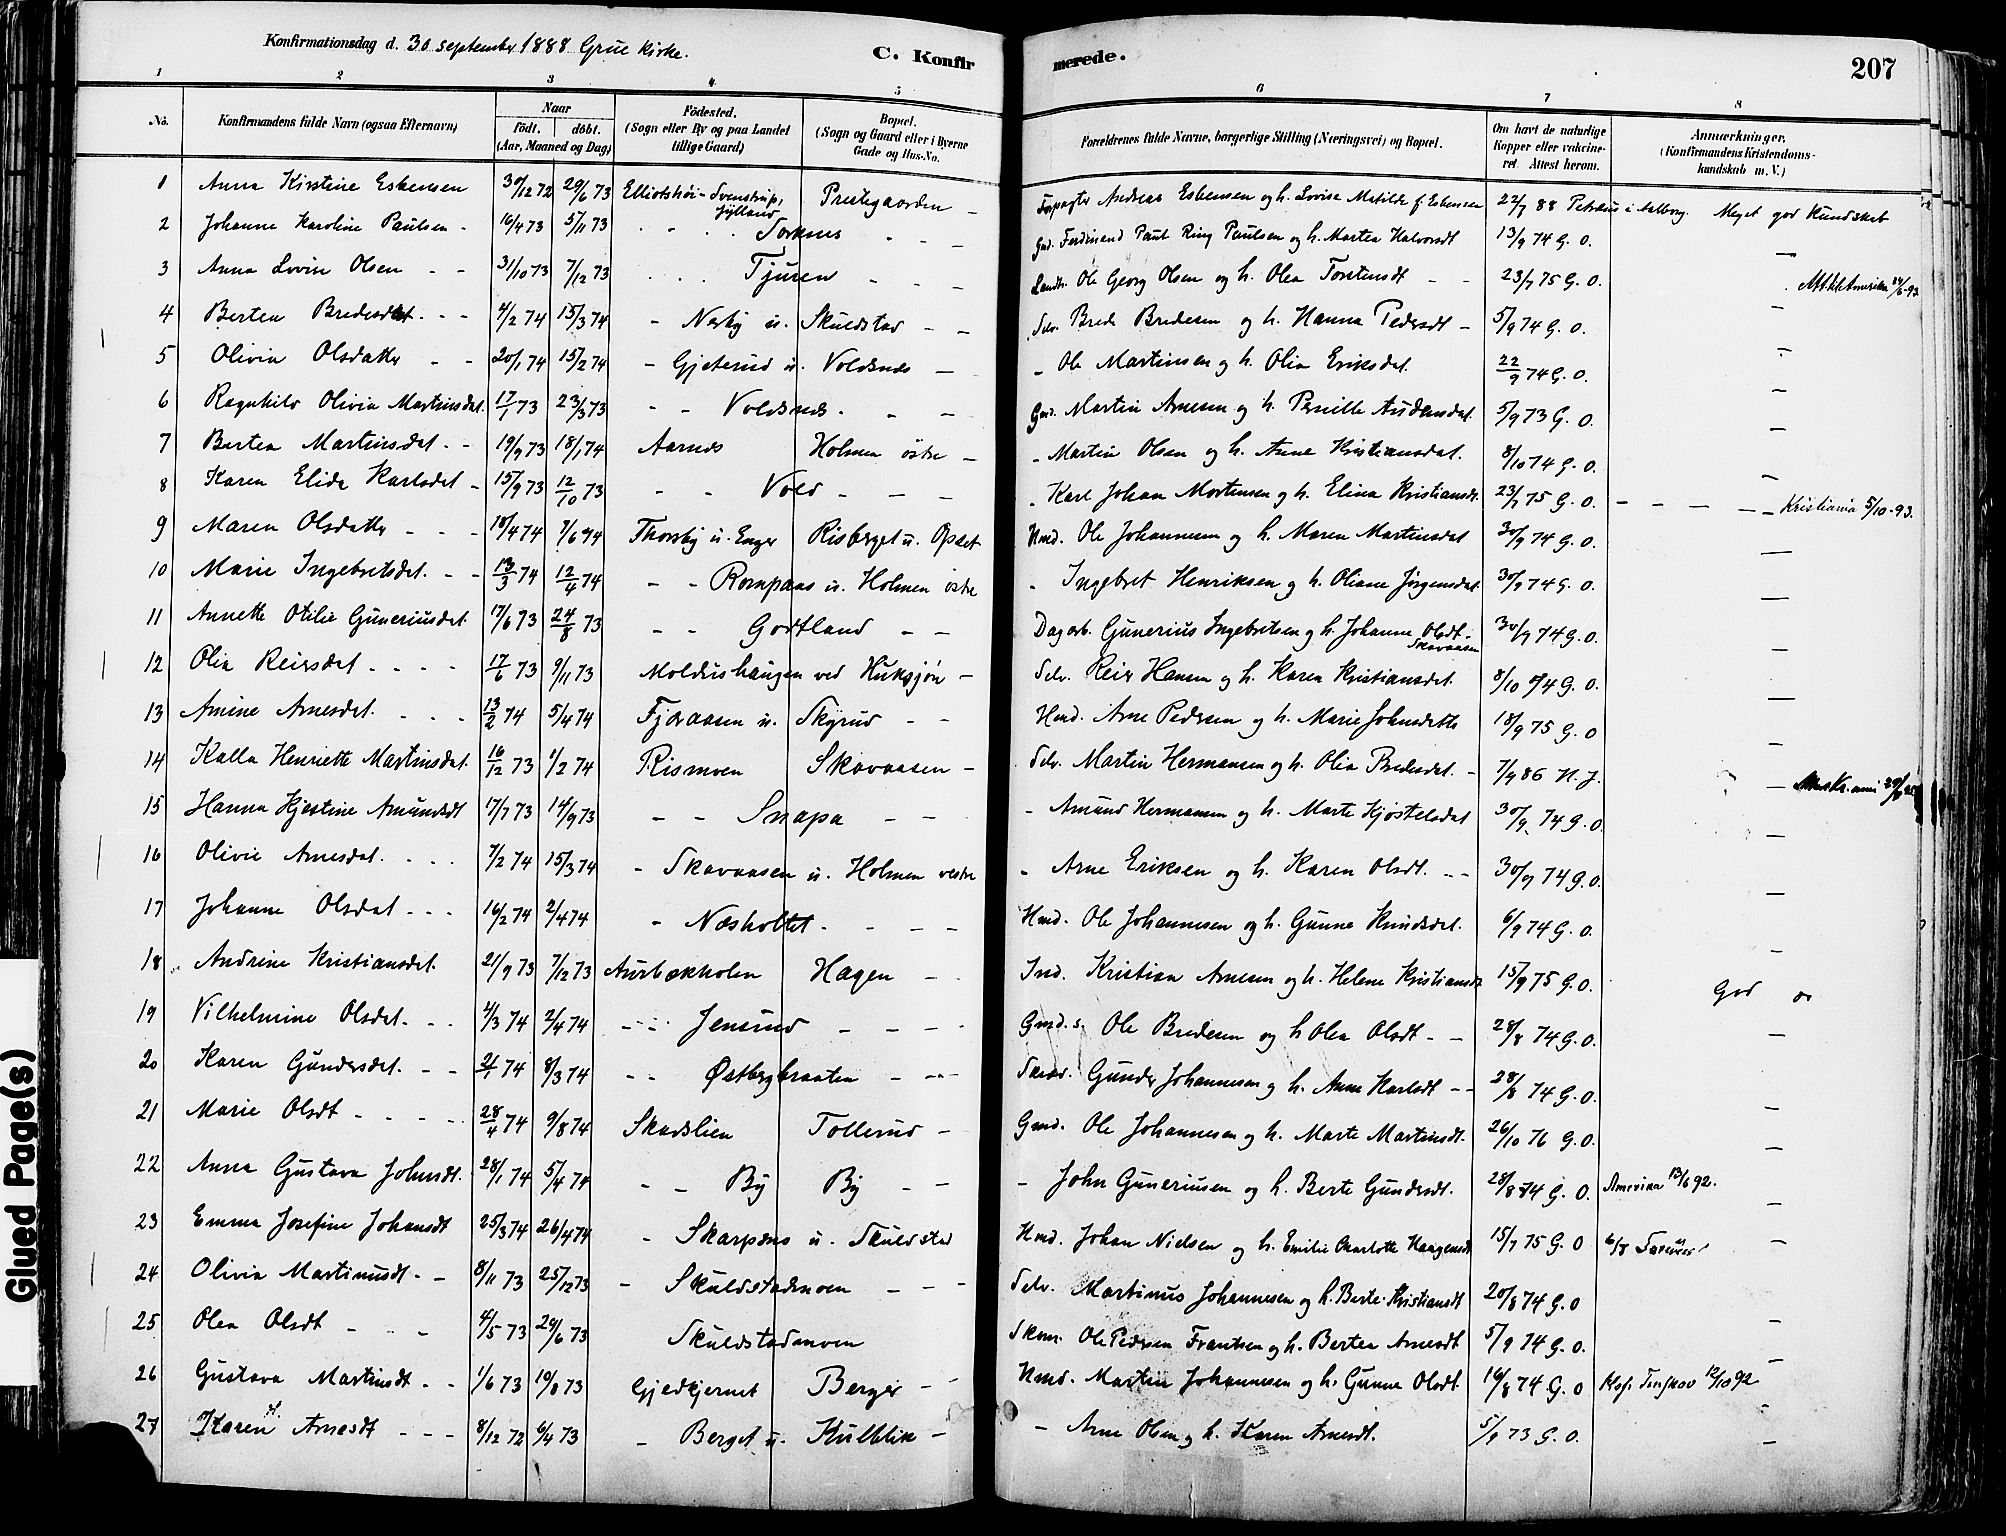 Konfirmationsdag d. 30 september 1888 Grue kirke.
C. Konfirmerede.
207
1 2 3 4 5 6 7 8
No.
Konfirmandens fulde Navn (ogsaa Efternavn)
Naar
födt. döbt.
(Aar, Maaned og Dag)
Födested.
(Sogn eller By og paa Landet
tillige Gaard)
Bopæl.
(Sogn og Gaard eller i Byerne
Gade og Hus-No.
Forældrenes fulde Navne, borgerlige Stilling (Næringsvei) og Bopæl.
Om havt de naturlige
Kopper eller vakcine-
ret. Attest herom.
Anmærkninger,
(Konfirmandens Kristendoms-
kundskab m. V.)
1 Anna Kirstine Esbensen 30/12 72 29/6 73 Svenstrup, Jylland Prestegaarden - Andreas Esbensen og h. Lovise Matilde f. Esbensen 22/7 88 i Aalborg. Meget god Kundskab
2 Johanne Karoline Paulsen - 16/4 73 5/11 73 Torknes - - - Gmd. Ferdinand Paul Ring Paulsen og h. Martea Halvorsdt 13/9 74 G. O. -
3 Anna Lovise Olsen - - 31/10 73 7/12 73 Tjuren - - - Landh. Ole Georg Olsen og h. Olea Torstensdt - - 23/7 75 G. O. Amerika 14/6-93
4 Bertea Bredesdat. - - 4/2 74 15/3 74 - Nerby u. Skulstad - - Selv. Brede Bredesen og h. Hanna Pedersdt - 5/9 74 G. O. -
5 Olivia Olsdatter - - 20/1 74 15/2 74 - Gjeterud u. Voldsnes - - Ole Martinsen og h. Olia Eriksdat. 22/9 74 G. O. -
6 Ragnhild Olivia Martinsdat. 17/1 73 23/3 73 - - Voldsnes. - - Gmd. Martin Arnesen og h. Pernille Audensdat. 5/9 73 G. O. -
7 Bertea Martinsdat. - - 19/9 73 18/1 74 Aarnes Holmen östre - - Martin Olsen og h. Anne Kristiansdat. 8/10 74 G. O. -
8 Karen Elida Karlsdat - 15/9 73 12/10 73 - - Vold - - - - Karl Johan Mortensen og h. Elina Kristiansdt. 23/7 75 G. O. - - - - - Kristiania 5/10-93.
9 Maren Olsdatter - - - 18/4 74 7/6 94 Thorsby u. Enger Risberget u. Opset Hmd. Ole Johannesen og h. Maren Martinsdat 30/9 74 G. O. -
10 Marie Ingebretsdat. - - 13/3 74 12/4 74 - - Rompaas u. Holmen östre - Ingebret Henriksen og h. Oliane Jörgensdat 30/9 74 G. O. -
11 Annette Otilie Guneriusdat. 17/6 73 24/8 73 - - Godtland - - Dagarb. Gunerius Ingebretsen og h. Johanne Olsdt. - Skavaasen 30/9 74 G. O. -
12 Olia Reiersdat. - - - - 17/6 73 9/11 73 Moldushaugen ved Huksjön - Selv. Reier Hansen og h. Karen Kristiansdat. 8/10 74 G. O. -
13 Amine Arnesdat. - - - 13/2 74 5/4 74 Fjoraasen u. Skyrud - - Hmd. Arne Pedersen og h. Marie Johnsdatter 18/9 75 G. O -
14 Kalla Henriette Martinsdat. 16/12 73 1/2 74 Rismoen Skavaasen - Selv. Martin Hermansen og h. Olia Bredesdat. - 7/9 86 N. J. -
15 Hanna Kjestine Amundsdt 17/7 73 14/9 73 - - Snapa - - - Amund Hermansen og h. Marte Kjöstelsdat 30/9 74 G. O. -
16 Olivie Arnesdat. - - - 7/2 74 15/3 74 - Skavaasen u. Holmen vestre - Arne Eriksen og h. Karen Olsdt. - - 30/9 74 G. O. -
17 Johanne Olsdat - - - 16/2 74 2/4 74 - Næsholtet. - - - Hmd. Ole Johannesen og h. Gunne Knudsdat. 6/9 74 G. O. -
18 Andrine Kristiansdat. 21/9 73 7/12 73 Aurbækholen Hagen - - Ind. Kristian Arnesen og h. Helene Kristiansdt 15/9 75 G. O. God
19 Vilhelmine Olsdat. - - 4/3 74 2/4 74 - - Jensrud - - - Gmd.s. Ole Bredesen og h Olea Olsdt - - 28/8 74 G. O. -
20 Karen Gundersdat. - - 2/1 74 8/3 74 - - Østbergbraaten - - - Gunder Johannesen og h. Anne Karlsdt - - 28/8 74 G. O. -
21 Marie Olsdt - - - - 28/4 74 9/8 74 Skaslien Tollerud - Gmd. Ole Johannesen og h. Marte Martinsdt. 26/10 76 G. O. -
22 Anna Gustava Johnsdt. 28/1 74 5/4 74 - - By By - - - John Guneriusen og h. Berte Gundersdt. 28/8 74 G. O. Amerika 13/6 92. -
23 Emma Josefine Johansdt 25/3 74 26/4 74 - Skarpsno u. Skulstad Hmd. Johan Nielsen og h. Emilie Charlotte Haagensdt 15/7 75 G. O 6/8 -
24 Olivia Martinusdt. - - 8/11 73 25/12 73 - Skuldstadmoen - - - Selv. Martinus Johannesen og h. Berte Kristiansdt 20/8 74 G. O -
25 Olea Olsdt - - - 4/5 73 29/6 73 Skuldstadmoen Skom. Ole Pedersen Frantsen og h. Bertea Arnesdt 5/9 74 G. O. -
26 Gustava Martinsdt - - 1/6 73 19/8 73 Gjedtjernet Berger - - Hmd. Martin Johannesen og h. Gunne Olsdt. 16/8 74 G. O 12/10 92 -
27 Karen Arnesdt - - - 8/12 72 6/4 73 - Berget u. Kulblik - - Arne Olsen og h. Karen Arnesdt. 5/9 73 G. O. -
Glued Page(s)